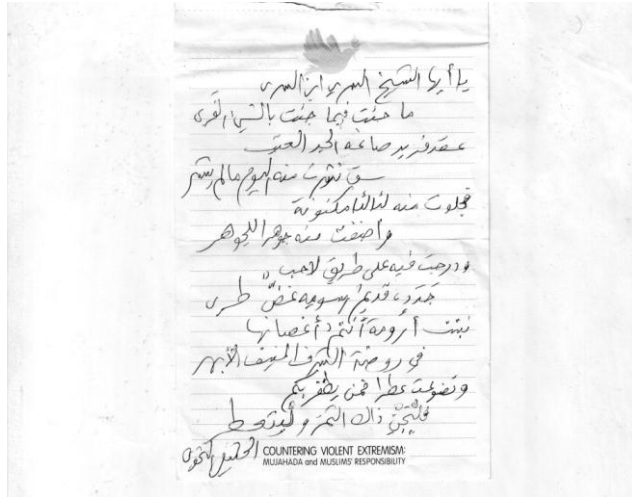 يا أيها الشيخ السري ابن السري
ما جئت فيما جئت بالشيء الفري
عقد فريد صاغه الجد
نثرت منه اليوم ما لم ينثر
فجلوت منه لئالئا مكنونة
وأضفت منه جوهرا للجوهر
ودرجت فيه على طريق لاحب
جدد قديم غض طري
نبتت أرومة أنتم أغصانها
في روضة الشرف المنيف الأبهر
وتضوعت عطرا فمن يظفر بكم
ذاك الثمر
COUNTERING VIOLENT EXTREMISM:
MUJAHADA and MUSLIMS' RESPONSIBILITY